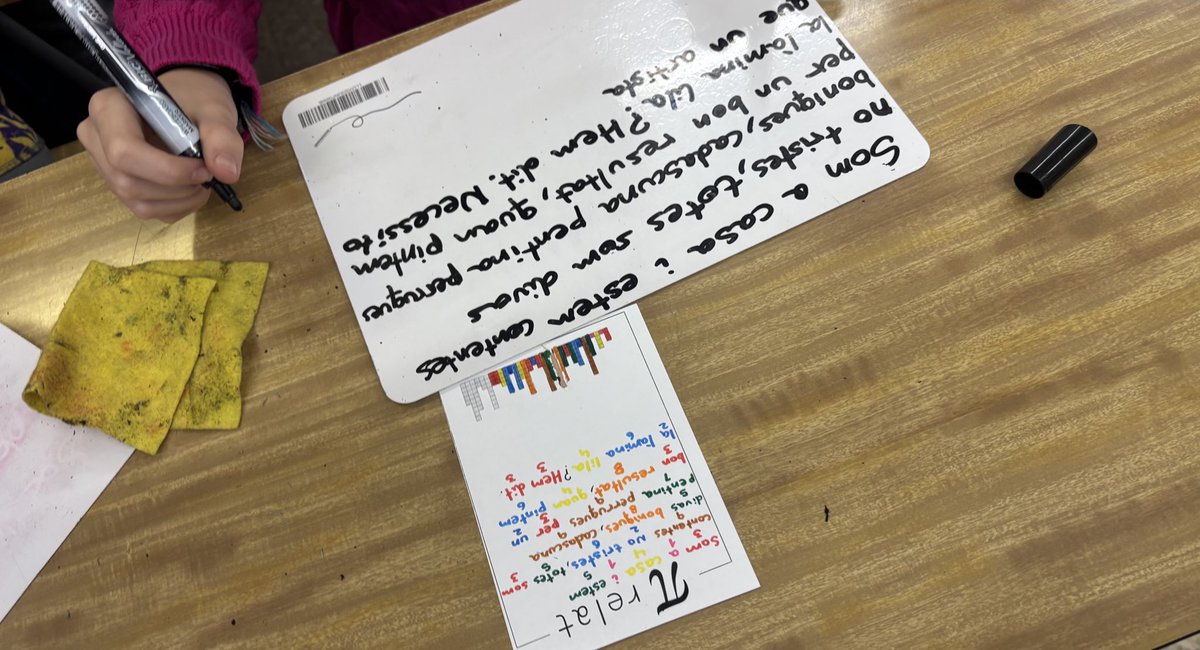 Som a casa i estem contentes
no tristes, totes som divas
boniques, cadascuna pentina perruques
per un bon resultat, quan pintem
la làmina lila? Hem dit. Necessito
que un artista
π relat
Som a casa i estem
3 1 4 1 5
contentes no tristes, totes som
9 2 6 5 3
divas boniques, cadascuna
5 8 9
pentina perruques per un
7 9 3 2
bon resultat, quan pintem
3 8 4 6
la làmina lila? Hem dit.
2 6 4 3 3